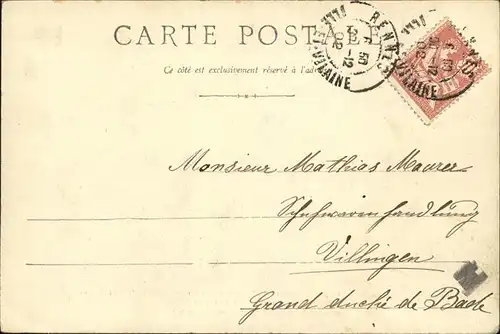 CARTE POSTALE
Ce côté est exclusivement réservé à l'adresse
RENNES
ILLE-ET-VILAINE
RENNES
VILAINE
Monsieur Mathias Maurer
Schuhwarenhandlung
Villingen
Grand duché de Bade